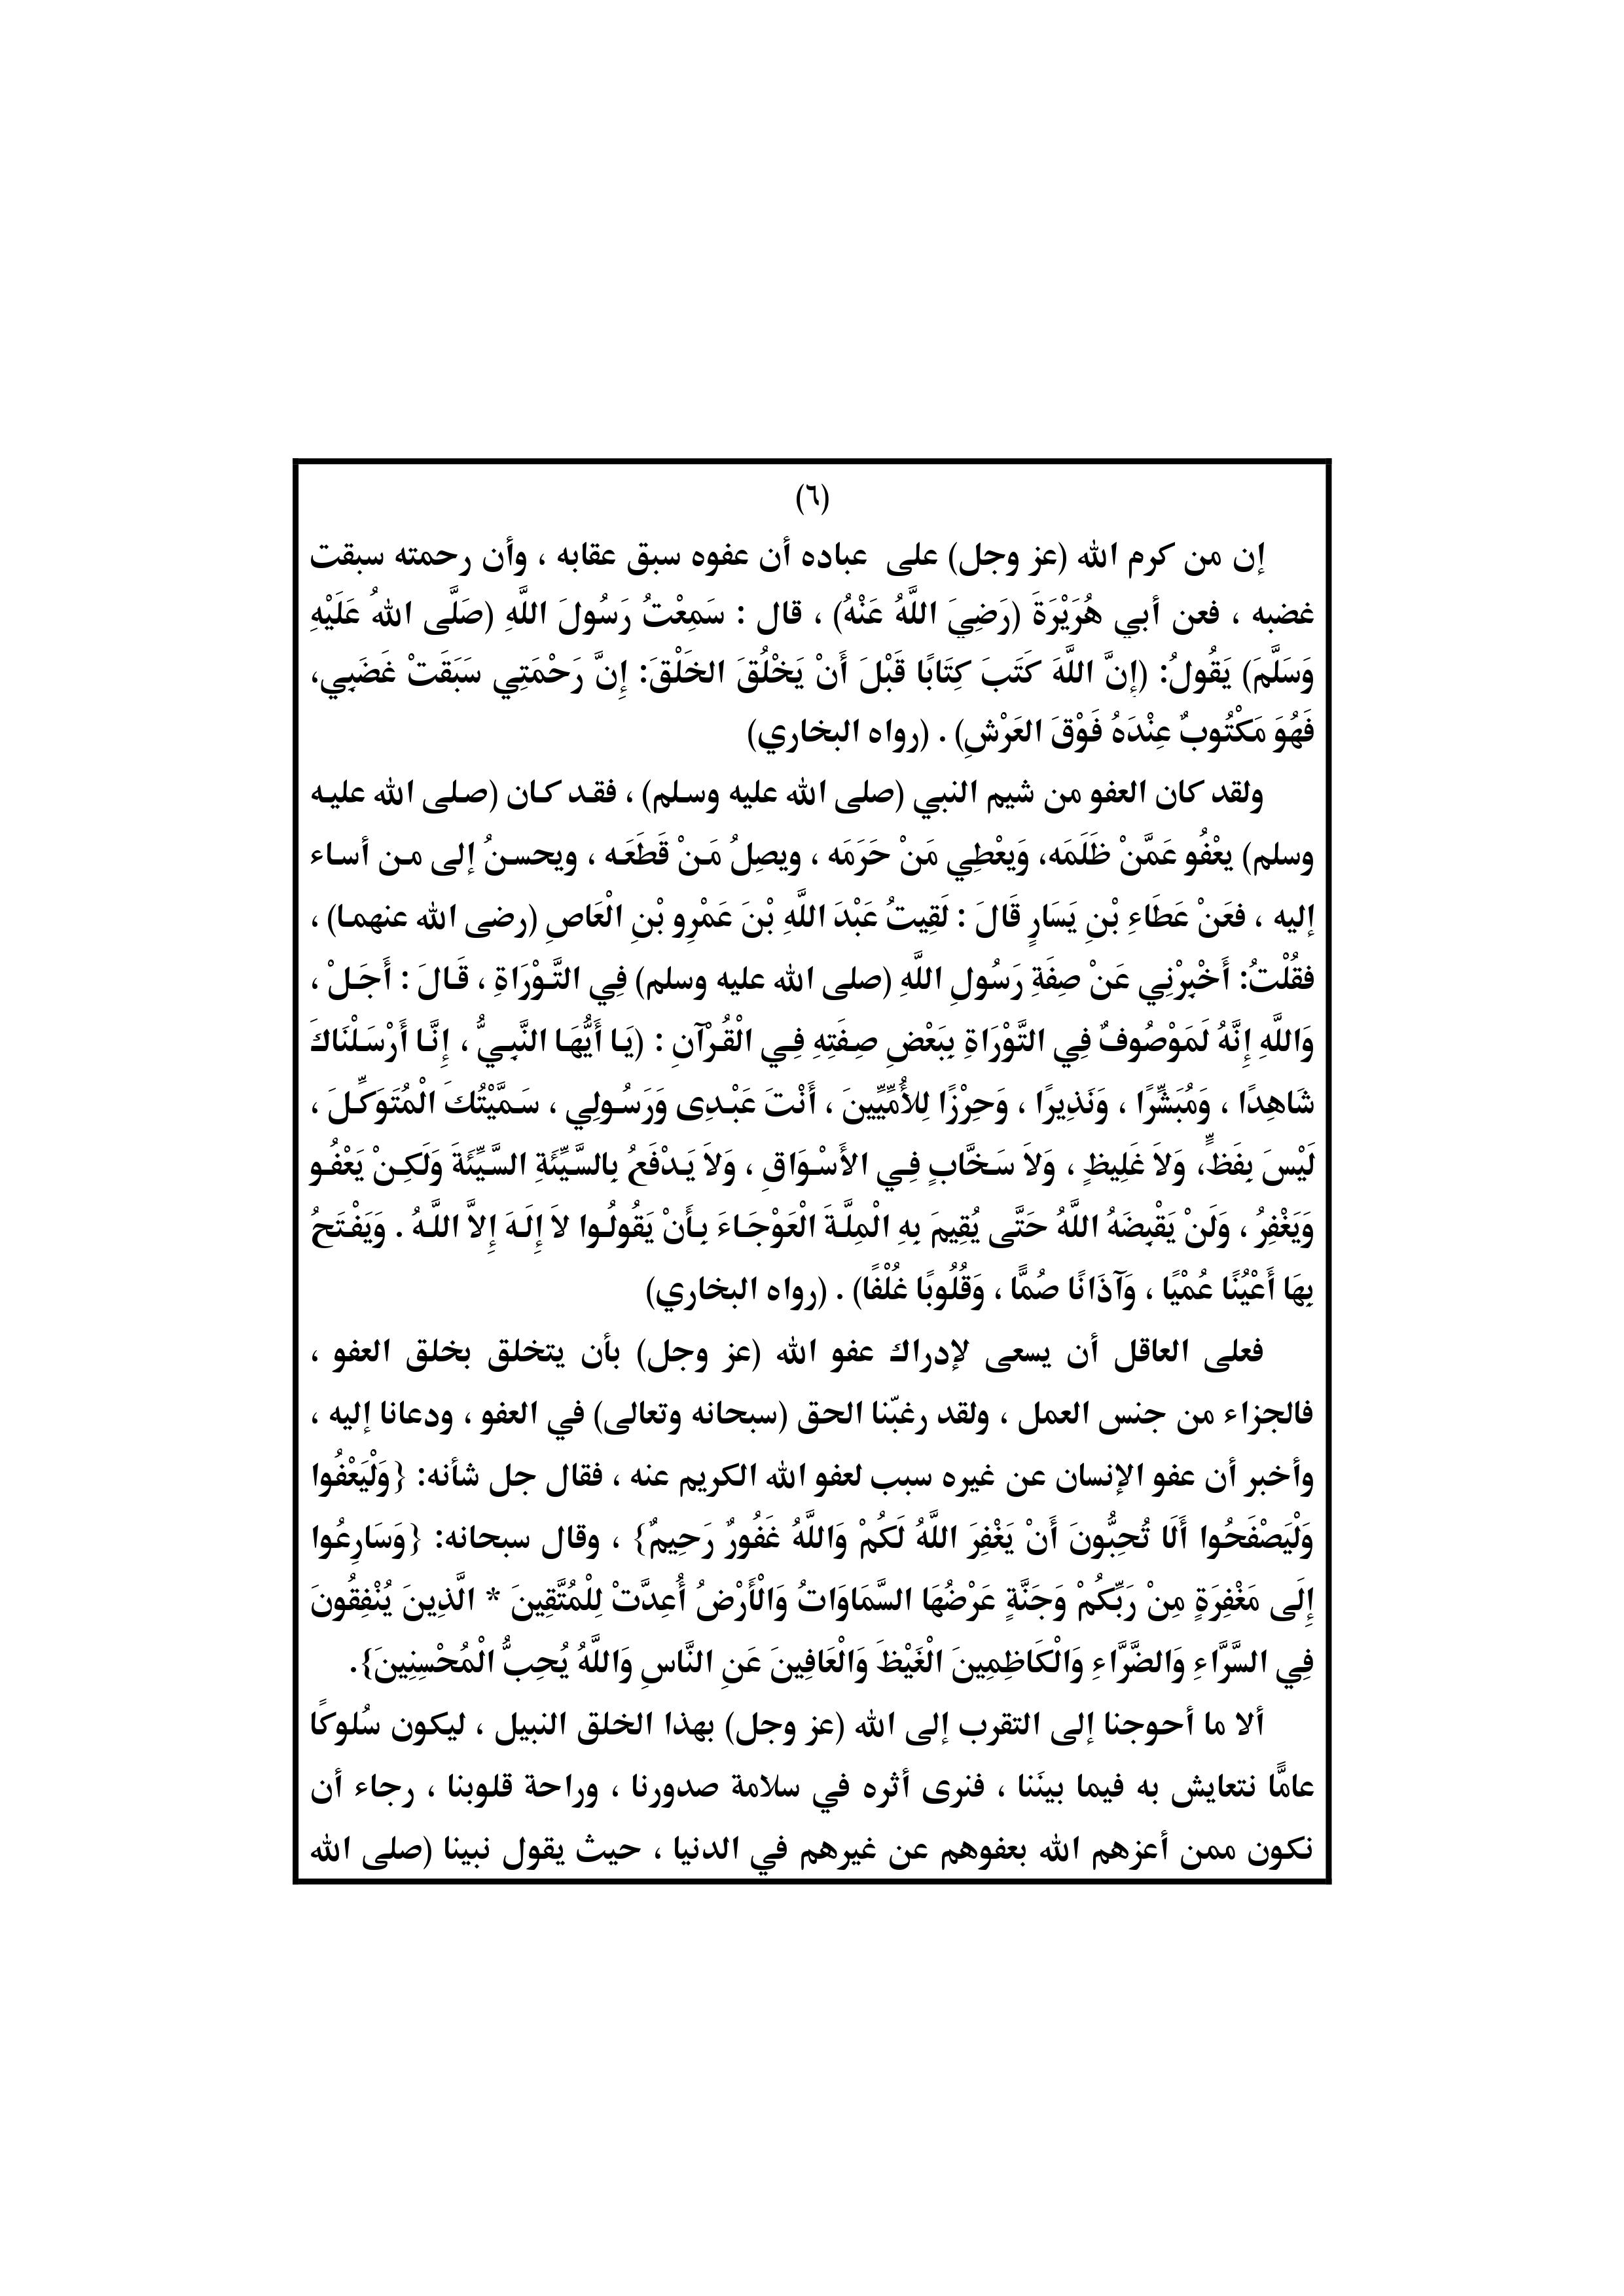 (٦)
إن من كرم الله (عز وجل) على عباده أن عفوه سبق عقابه ، وأن رحمته سبقت
غضبه ، فعن أبي هُرَيْرَةَ (رَضِيَ اللَّهُ عَنْهُ) ، قال : سَمِعْتُ رَسُولَ اللَّهِ (صَلَّى اللهُ عَلَيْهِ
وَسَلَّمَ) يَقُولُ: (إِنَّ اللَّهَ كَتَبَ كِتَابًا قَبْلَ أَنْ يَخْلُقَ الخَلْقَ: إِنَّ رَحْمَتِي سَبَقَتْ غَضَبِي،
فَهُوَ مَكْتُوبٌ عِنْدَهُ فَوْقَ العَرْشِ) . (رواه البخاري)
ولقد كان العفو من شيم النبي (صلى الله عليه وسلم) ، فقد كان (صلى الله عليه
وسلم) يعْفُو عَمَّنْ ظَلَمَه، وَيعْطِي مَنْ حَرَمَه ، ويصِلُ مَنْ قَطَعَه ، ويحسنُ إلى من أساء
إليه ، فعَنْ عَطَاءِ بْنِ يَسَارٍ قَالَ : لَقِيتُ عَبْدَ اللَّهِ بْنَ عَمْرِو بْنِ الْعَاصِ (رضى الله عنهما) ،
فقُلْتُ: أَخْبِرْنِي عَنْ صِفَةِ رَسُولِ اللَّهِ (صلى الله عليه وسلم) فِي التَّوْرَاةِ ، قَالَ : أَجَلْ ،
وَاللَّهِ إِنَّهُ لَمَوْصُوفٌ فِي التَّوْرَاةِ بِبَعْضِ صِفَتِهِ فِي الْقُرْآنِ : (يَا أَيُّهَا النَّبِيُّ ، إِنَّا أَرْسَلْنَاكَ
شَاهِدًا ، وَمُبَشِّرًا ، وَنَذِيرًا ، وَحِرْزًا لِلأُمِّيِّينَ ، أَنْتَ عَبْدِى وَرَسُولِي ، سَمَّيْتُكَ الْمُتَوَكِّلَ ،
لَيْسَ بِفَظٍّ، وَلاَ غَلِيظٍ ، وَلاَ سَخَّابٍ فِي الأَسْوَاقِ ، وَلاَ يَدْفَعُ بِالسَّيِّئَةِ السَّيِّئَةَ وَلَكِنْ يَعْفُو
وَيَغْفِرُ ، وَلَنْ يَقْبِضَهُ اللَّهُ حَتَّى يُقِيمَ بِهِ الْمِلَّةَ الْعَوْجَاءَ بِأَنْ يَقُولُوا لاَ إِلَهَ إِلاَّ اللَّهُ . وَيَفْتَحُ
بِهَا أَعْيُنًا عُمْيًا ، وَآذَانًا صُمًّا ، وَقُلُوبًا غُلْفًا) . (رواه البخاري)
فعلى العاقل أن يسعى لإدراك عفو الله (عز وجل) بأن يتخلق بخلق العفو ،
فالجزاء من جنس العمل ، ولقد رغبّنا الحق (سبحانه وتعالى) في العفو ، ودعانا إليه ،
وأخبر أن عفو الإنسان عن غيره سبب لعفو الله الكريم عنه ، فقال جل شأنه: {وَلْيَعْفُوا
وَلْيَصْفَحُوا أَلَا تُحِبُّونَ أَنْ يَغْفِرَ اللَّهُ لَكُمْ وَاللَّهُ غَفُورٌ رَحِيمٌ} ، وقال سبحانه: {وَسَارِعُوا
إِلَى مَغْفِرَةٍ مِنْ رَبِّكُمْ وَجَنَّةٍ عَرْضُهَا السَّمَاوَاتُ وَالْأَرْضُ أُعِدَّتْ لِلْمُتَّقِينَ * الَّذِينَ يُنْفِقُونَ
فِي السَّرَّاءِ وَالضَّرَّاءِ وَالْكَاظِمِينَ الْغَيْظَ وَالْعَافِينَ عَنِ النَّاسِ وَاللَّهُ يُحِبُّ الْمُحْسِنِينَ}.
ألا ما أحوجنا إلى التقرب إلى الله (عز وجل) بهذا الخلق النبيل ، ليكون سُلوكًا
عامًّا نتعايش به فيما بينَنا ، فنرى أثره في سلامة صدورنا ، وراحة قلوبنا ، رجاء أن
نكون ممن أعزهم الله بعفوهم عن غيرهم في الدنيا ، حيث يقول نبينا (صلى الله